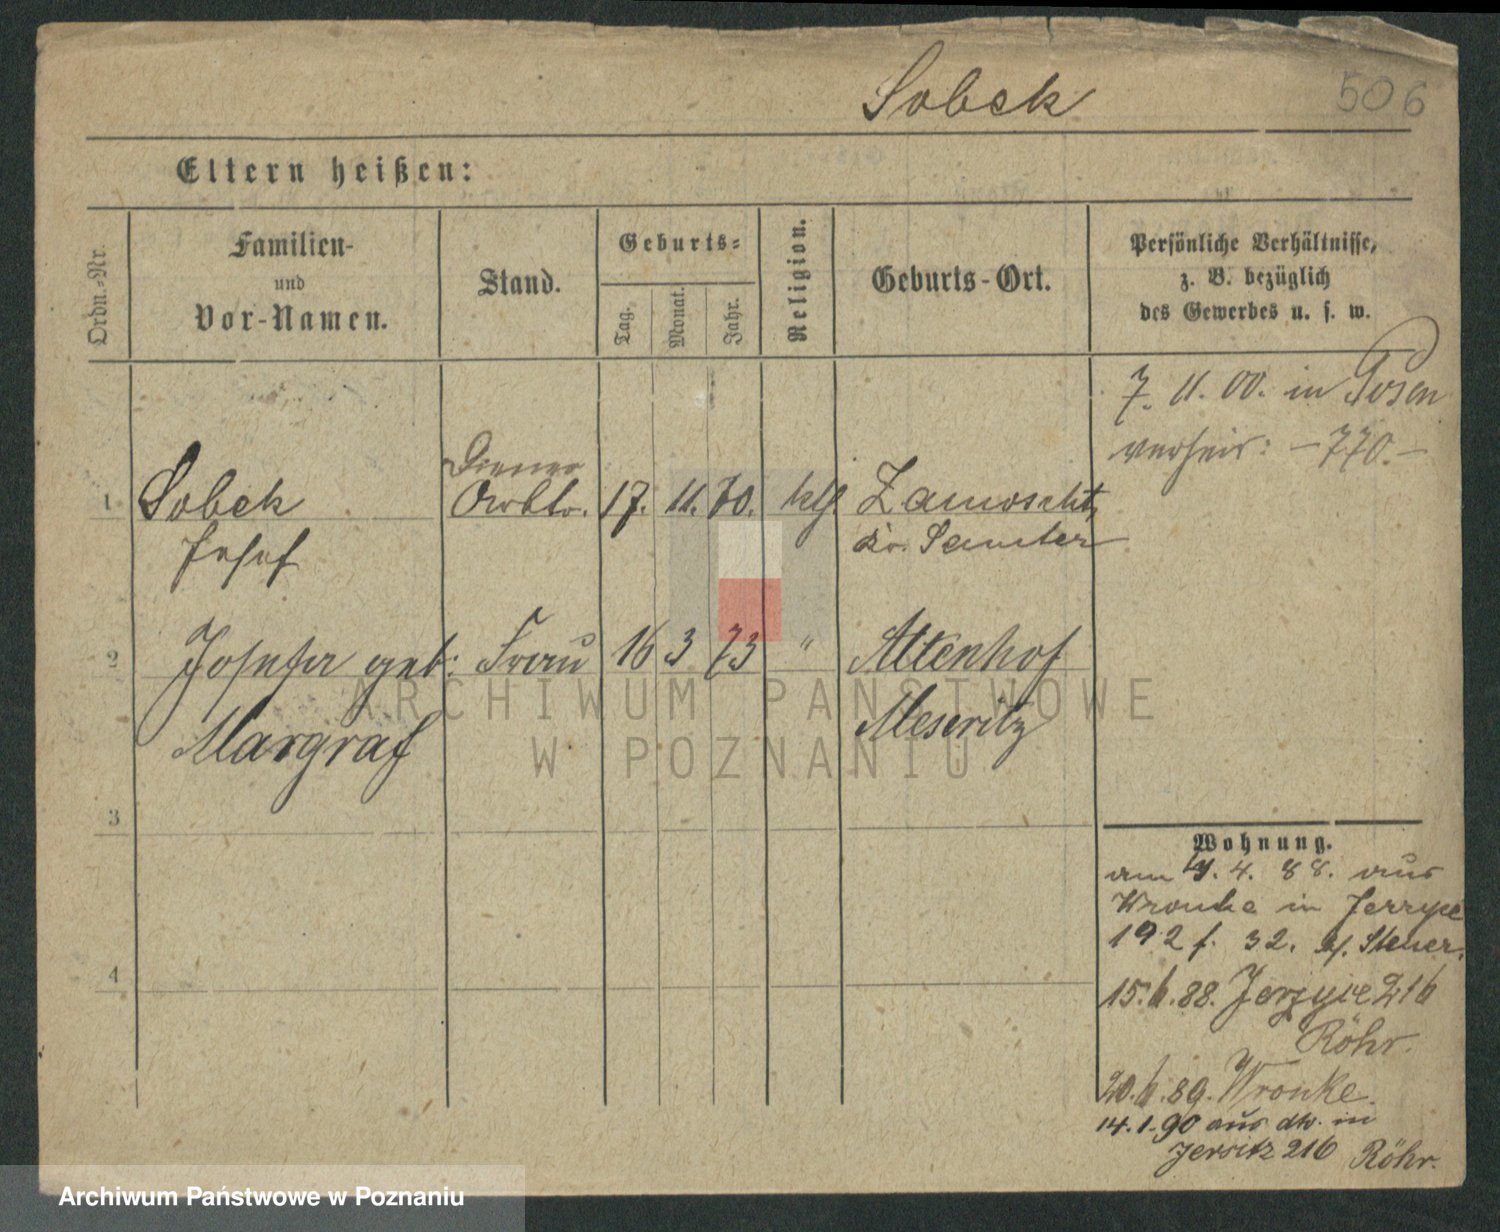 Sobek
506
Eltern heißen:
Ordn.-Nr.
Familien-
und
Vor-Namen.
Stand.
Geburts-
Tag.
Monat.
Jahr.
Religion.
Geburts-Ort.
Persönliche Verhältnisse,
z. B. bezüglich
des Gewerbes u. s. w.
7. 11. 00. in Posen
verheir: – 770. –
Diener
1 Sobek Arbtr. 17. 11. 70. kth. Zamoscht,
Josef Kr. Samter
2 Josefa geb: Frau 16 3 73 " Altenhof
Margraf Meseritz
3
4
Wohnung.
am 9. 4. 88. aus
Wronke in Jerzyce
192 f. 32. Steuer.
15. 6. 88. Jerzyce 216
Röhr.
20. 6. 89. Wronke.
14. 1. 90 aus do. in
Jersitz 216 Röhr.
ARCHIWUM PAŃSTWOWE
W POZNANIU
Archiwum Państwowe w Poznaniu